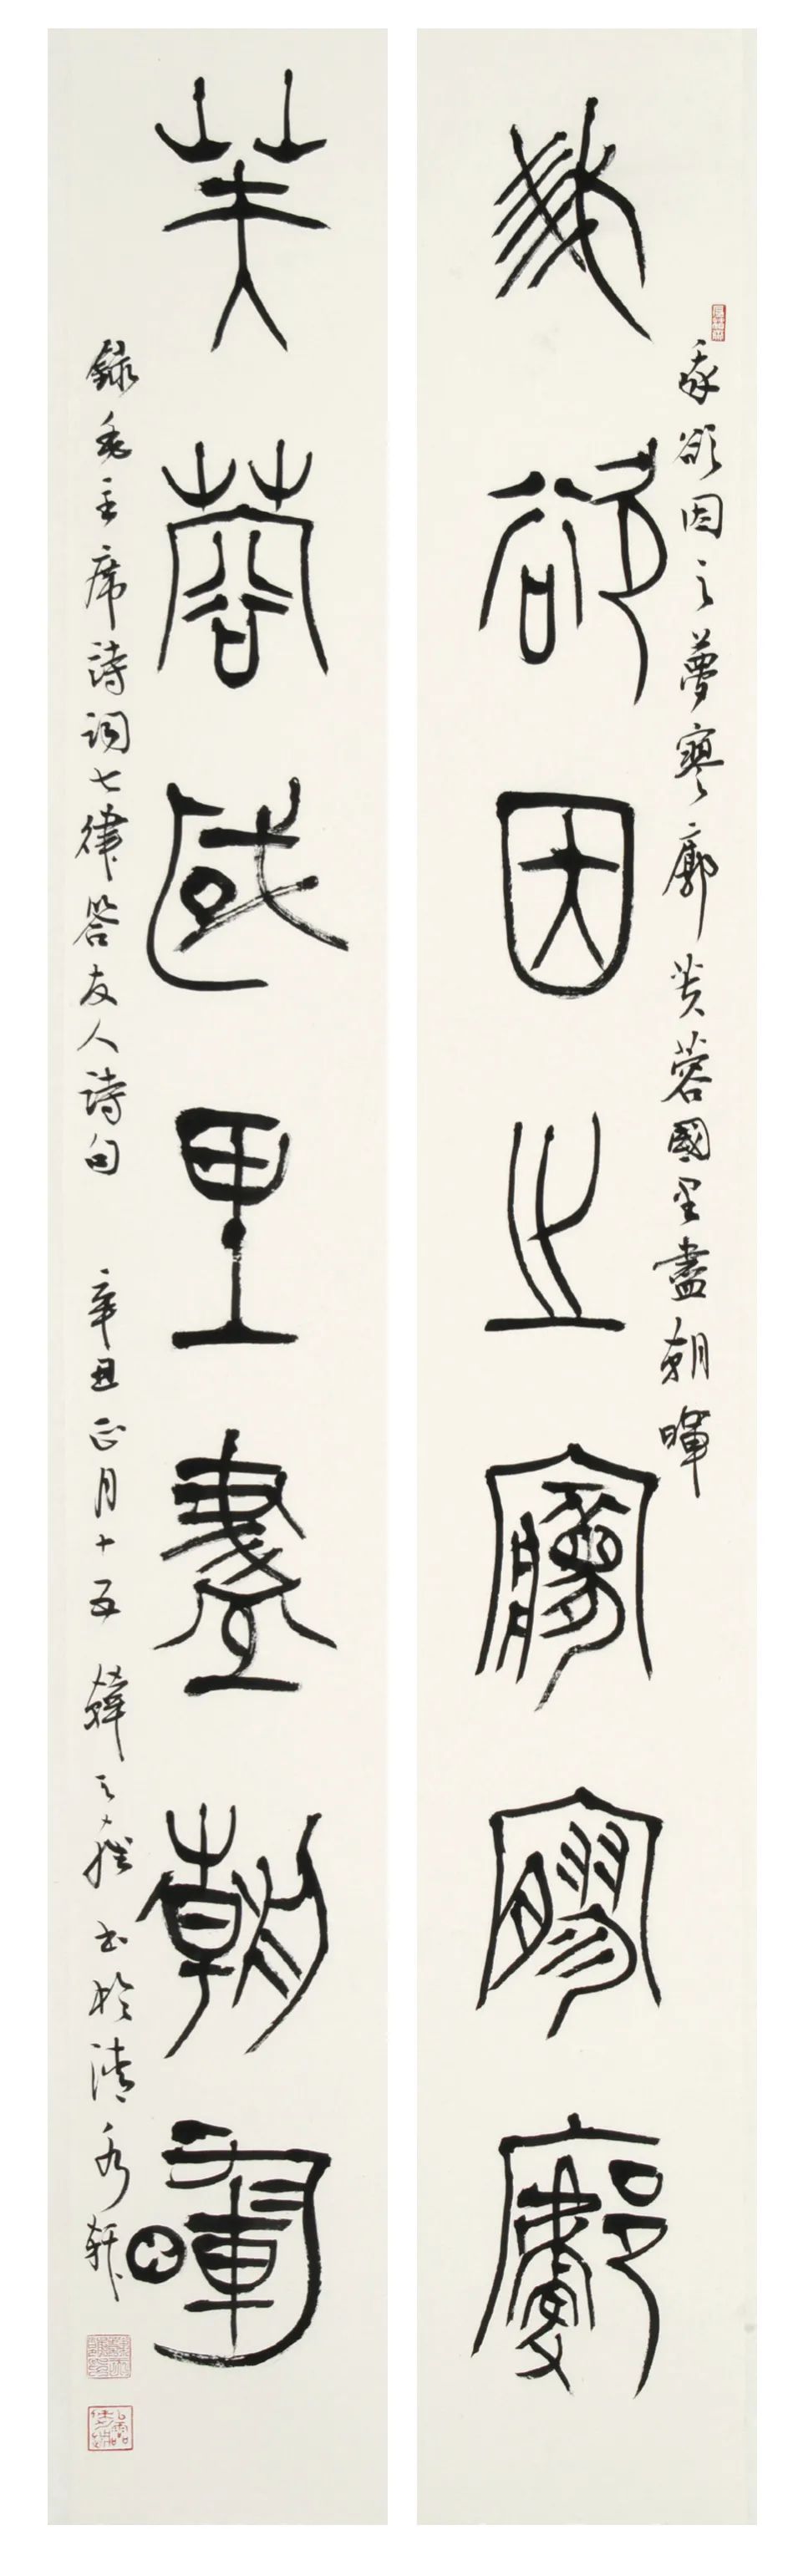 我欲因之夢寥廓芙蓉國里盡朝暉
我欲因之夢寥廓
芙蓉國里盡朝暉
錄毛主席詩詞七律答友人詩句 辛丑正月十五 韓之 書於清秀軒